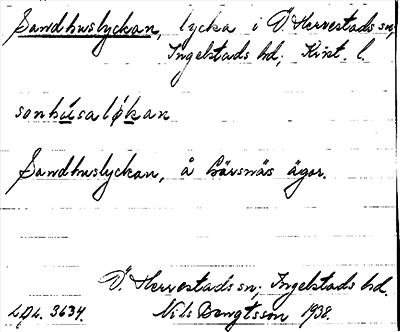 Sandhuslyckan, lycka i Ö. Herrestads sn;
Ingelstads hd; Krist. l.
sonhúsalǿkan
Sandhuslyckan, å Bävsnäs ägor.
Ö. Herrestads sn; Ingelstads hd.
L.D.L. 3634. Nils Bengtsson 1932.